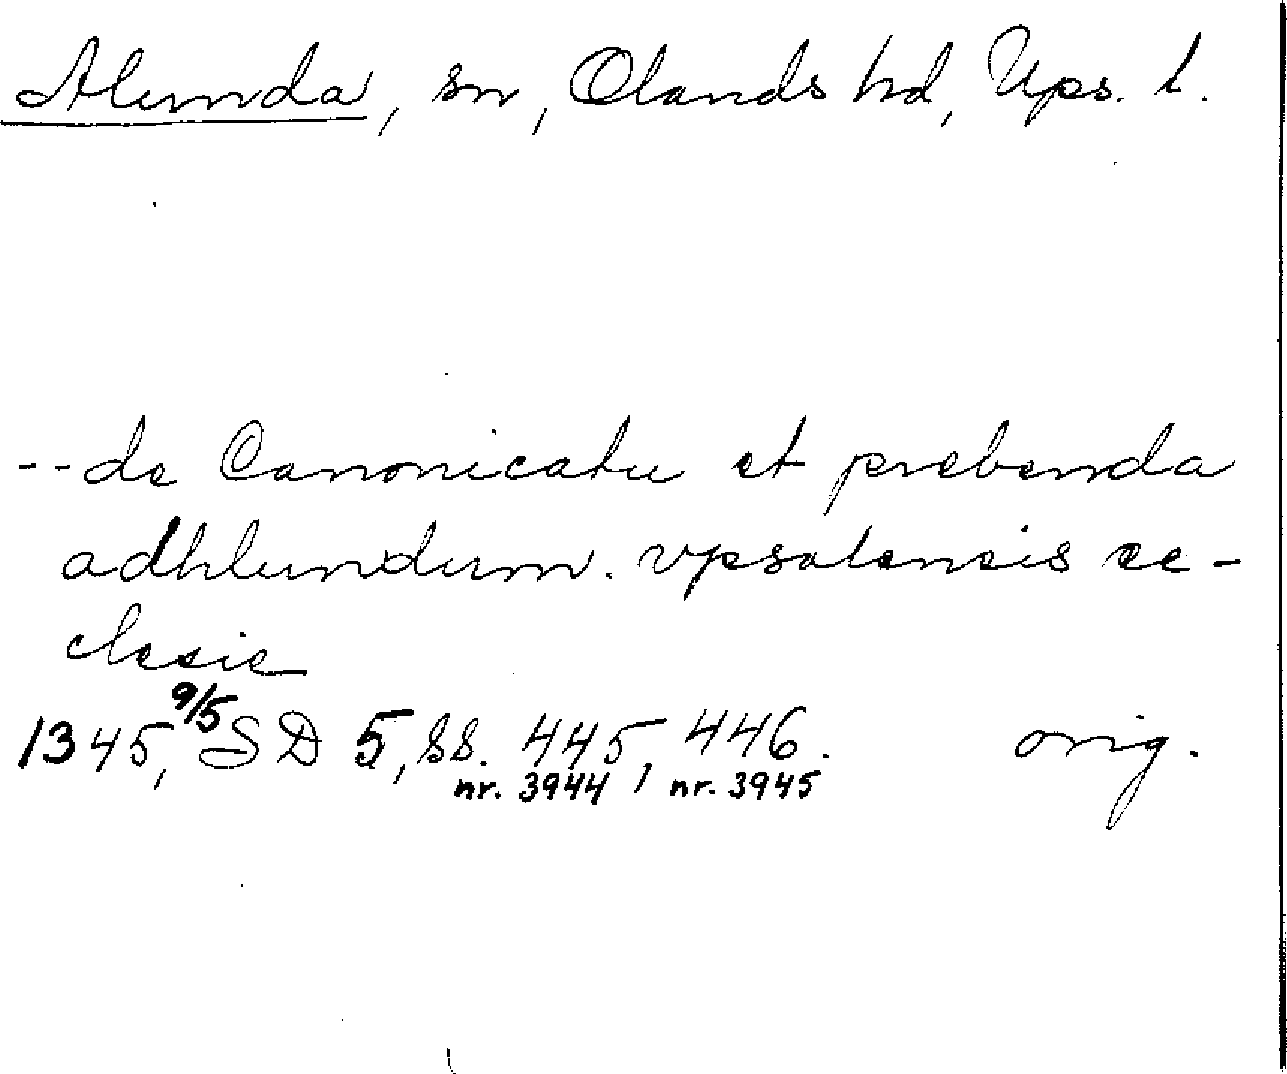 Alunda, sn, Olands hd, Ups. l.
--de Canonicatu et prebenda
adhlundum. vpsalensis ec-
clesie
1345, 9/5 SD 5, ss. 445, 446. orig.
nr. 3944, nr. 3945